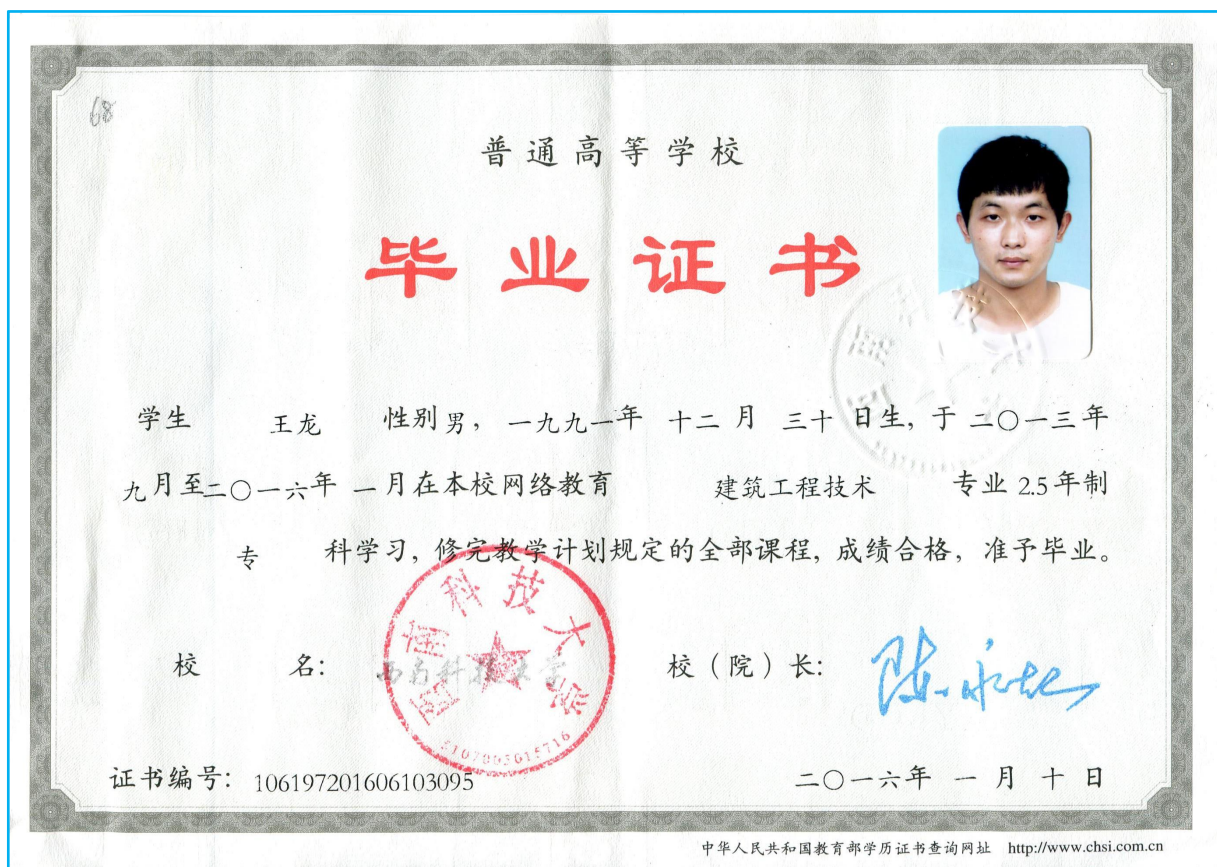 68
普通高等学校
毕业证书
学生 王龙 性别 男， 一九九一年 十二 月 三十 日生，于 二〇一三年
九月至二〇一六年 一月在本校网络教育 建筑工程技术 专业 2.5年制
专 科学习，修完教学计划规定的全部课程，成绩合格，准予毕业。
校 名： 西南科技大学 校（院）长： 陈永灿
西南科技大学
5107003015716
证书编号： 106197201606103095 二〇一六年 一 月 十 日
中华人民共和国教育部学历证书查询网址 http://www.chsi.com.cn